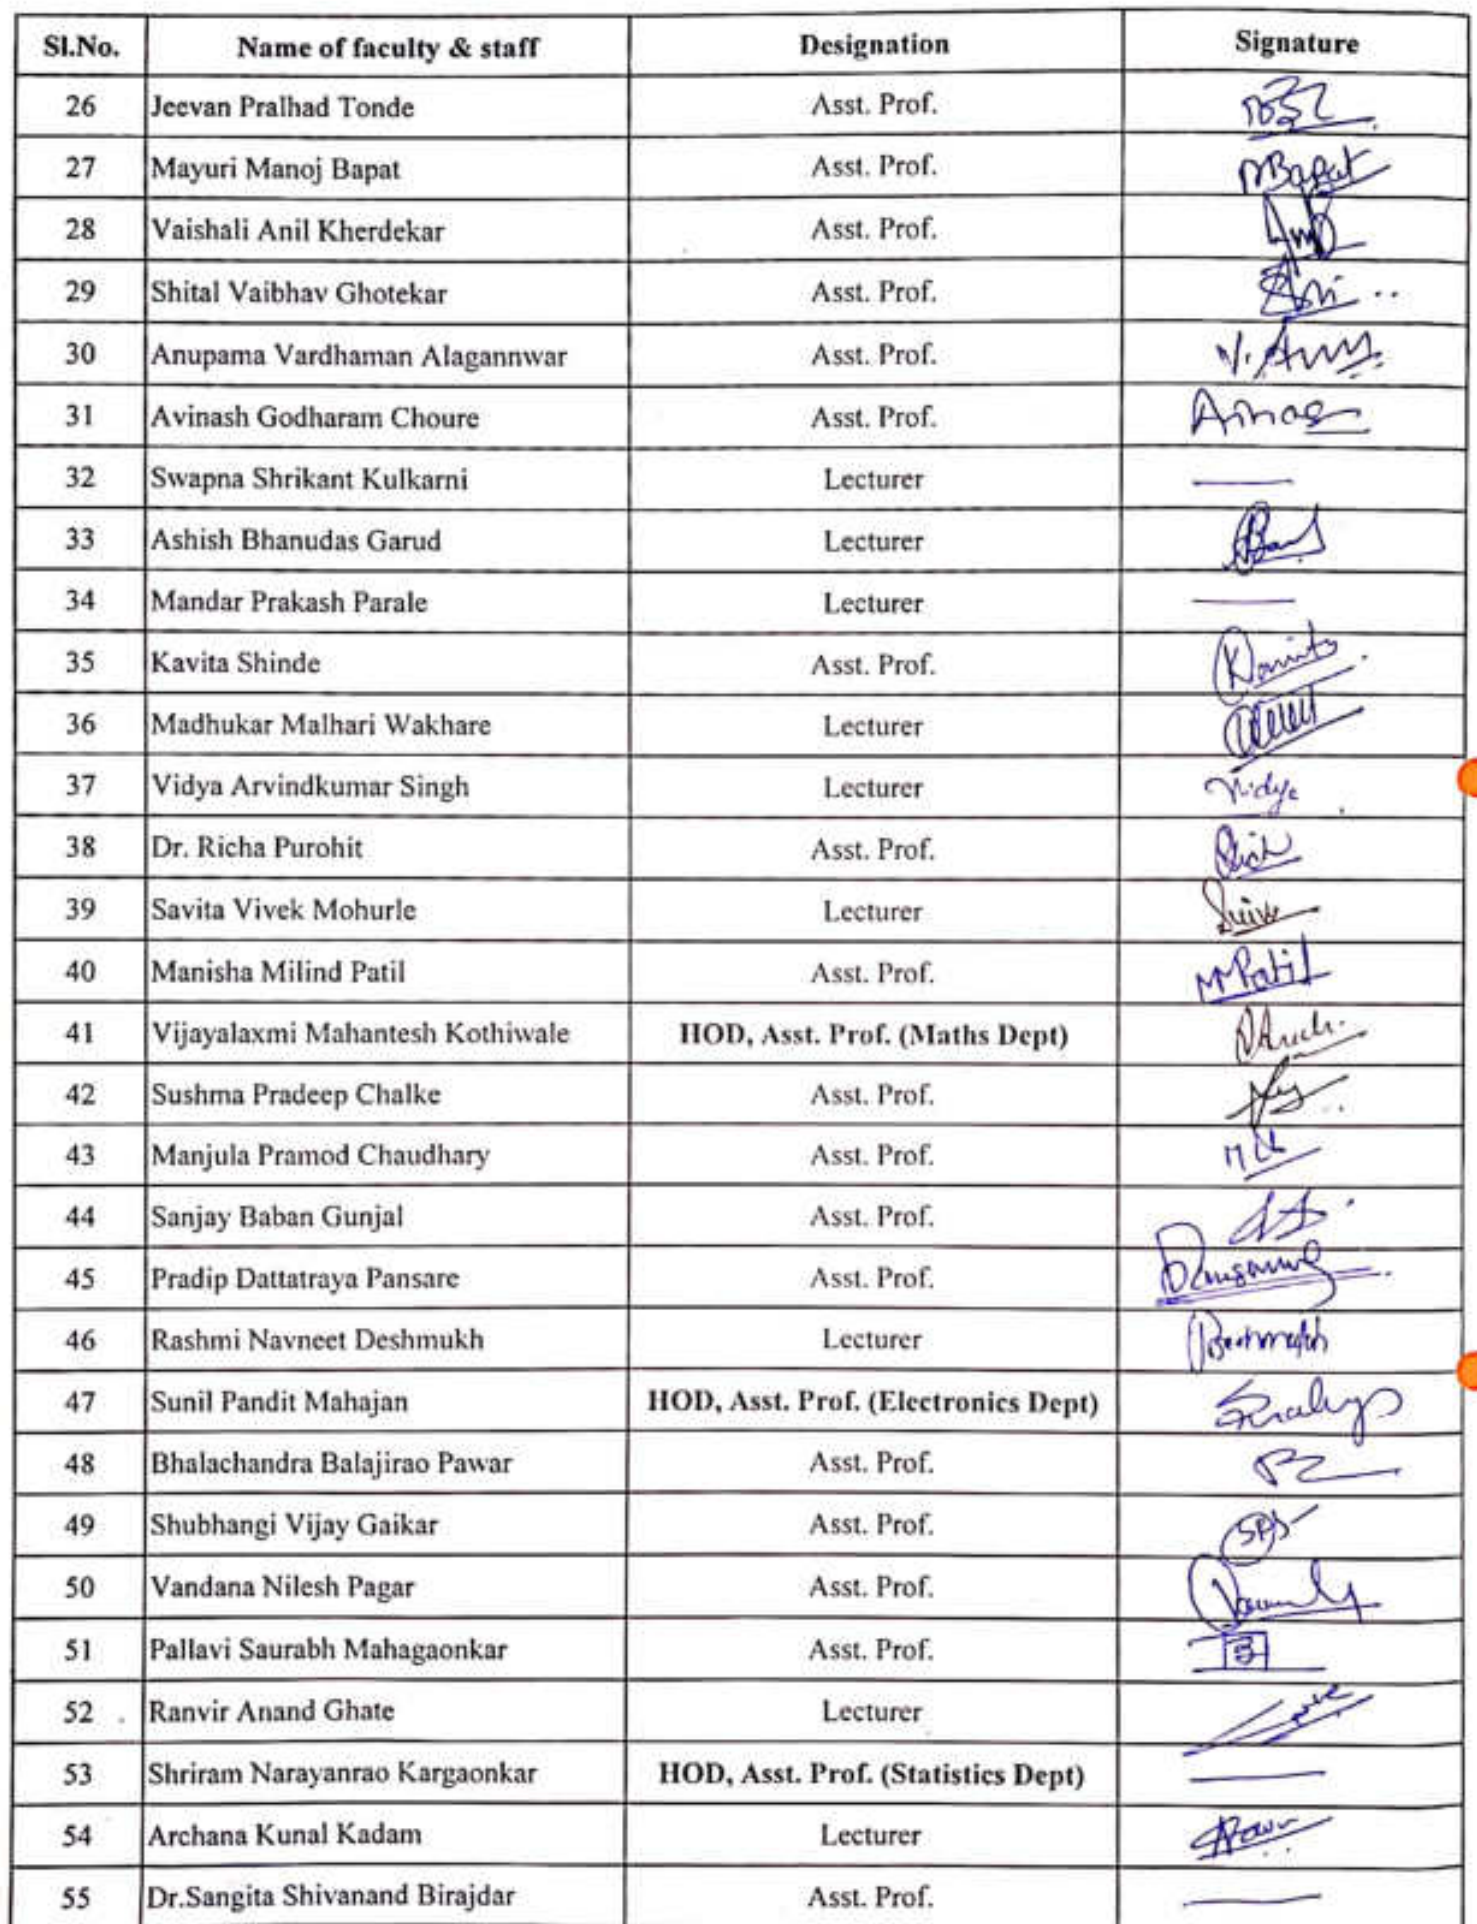 Sl.No. Name of faculty & staff Designation Signature
26 Jeevan Pralhad Tonde Asst. Prof.
27 Mayuri Manoj Bapat Asst. Prof. MBapat
28 Vaishali Anil Kherdekar Asst. Prof.
29 Shital Vaibhav Ghotekar Asst. Prof.
30 Anupama Vardhaman Alagannwar Asst. Prof.
31 Avinash Godharam Choure Asst. Prof.
32 Swapna Shrikant Kulkarni Lecturer —
33 Ashish Bhanudas Garud Lecturer
34 Mandar Prakash Parale Lecturer —
35 Kavita Shinde Asst. Prof.
36 Madhukar Malhari Wakhare Lecturer
37 Vidya Arvindkumar Singh Lecturer Vidya
38 Dr. Richa Purohit Asst. Prof.
39 Savita Vivek Mohurle Lecturer
40 Manisha Milind Patil Asst. Prof. MPatil
41 Vijayalaxmi Mahantesh Kothiwale HOD, Asst. Prof. (Maths Dept)
42 Sushma Pradeep Chalke Asst. Prof.
43 Manjula Pramod Chaudhary Asst. Prof.
44 Sanjay Baban Gunjal Asst. Prof.
45 Pradip Dattatraya Pansare Asst. Prof.
46 Rashmi Navneet Deshmukh Lecturer
47 Sunil Pandit Mahajan HOD, Asst. Prof. (Electronics Dept)
48 Bhalachandra Balajirao Pawar Asst. Prof.
49 Shubhangi Vijay Gaikar Asst. Prof.
50 Vandana Nilesh Pagar Asst. Prof.
51 Pallavi Saurabh Mahagaonkar Asst. Prof.
52 Ranvir Anand Ghate Lecturer
53 Shriram Narayanrao Kargaonkar HOD, Asst. Prof. (Statistics Dept) —
54 Archana Kunal Kadam Lecturer
55 Dr.Sangita Shivanand Birajdar Asst. Prof. —